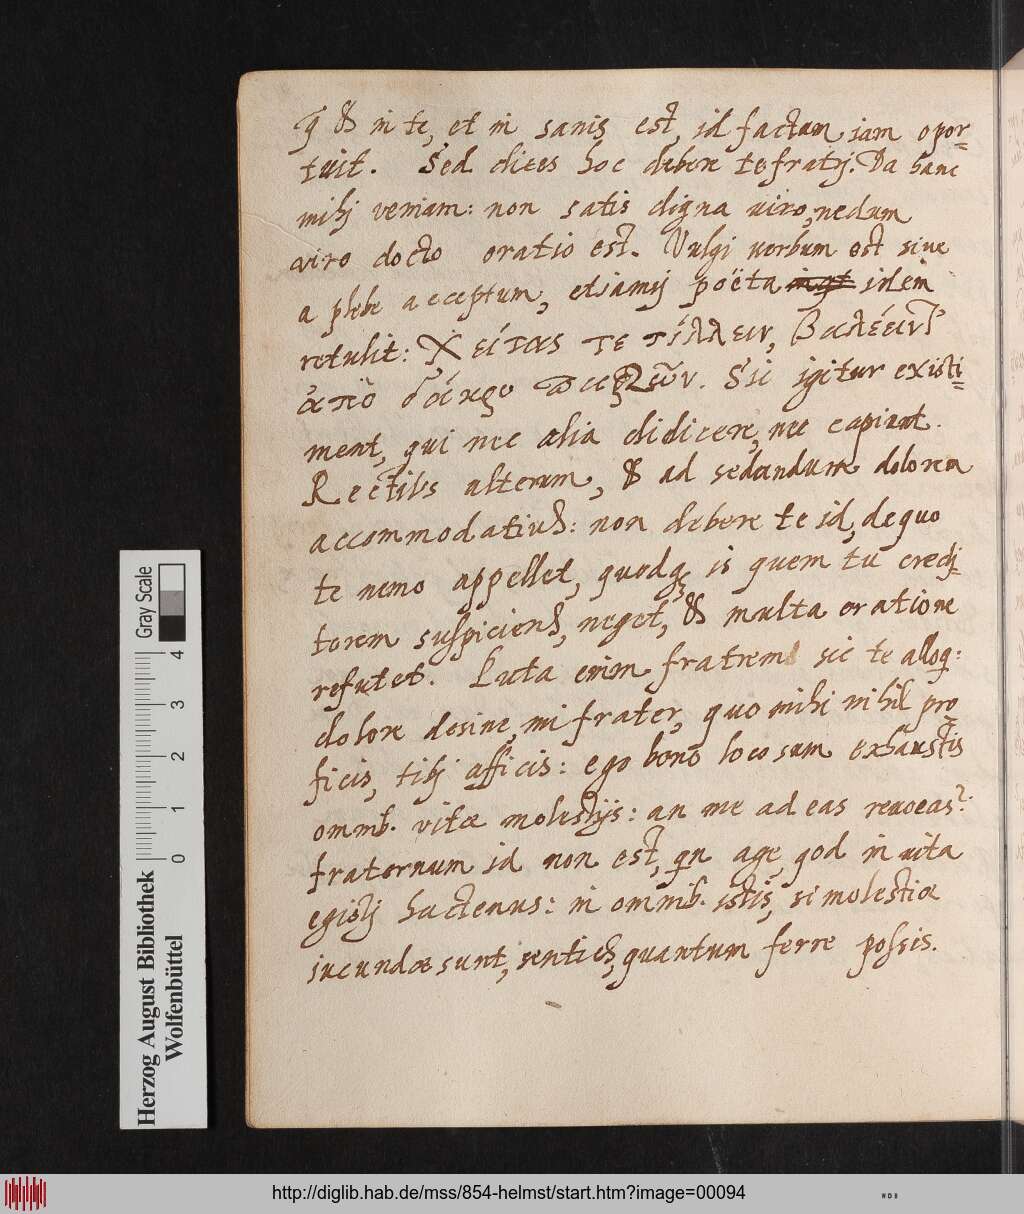 q̃ & in te, et in sanis est, id factum iam opor=
tuit. Sed dices hoc debere te fratrj. Da hanc
mihj veniam: non satis digna uiro, nedum
viro docto oratio est. Vulgi uerbum est siue
a plebe acceptum, etiamsj poëta idem
retulit: Χείτας τε τίλλειν, βαλέειν τ'
ἀπὸ δάκρυ παρειῶν. Sic igitur existi=
ment, qui nec alia didicere, nec capiunt.
Rectius alterum, & ad sedandum dolorem
accommodatius: non debere te id, de quo
te nemo appellet, quodq; is quem tu credj=
torem suspiciens, neget, & multa oratione
refutet. Puta enim fratrem sic te alloq:
dolore desine, mi frater, quo mihi nihil pro=
ficis, tibj afficis: ego bono loco sum exhaustis
omnib. vitæ molestijs: an me ad eas reuocas?
fraternum id non est, qn age, qod in uita
egistj hactenus: in omnib. istis, si molestiæ
iucundæ sunt, senties, quantum ferre possis.
Gray Scale
0 1 2 3 4
Herzog August Bibliothek
Wolfenbüttel
http://diglib.hab.de/mss/854-helmst/start.htm?image=00094